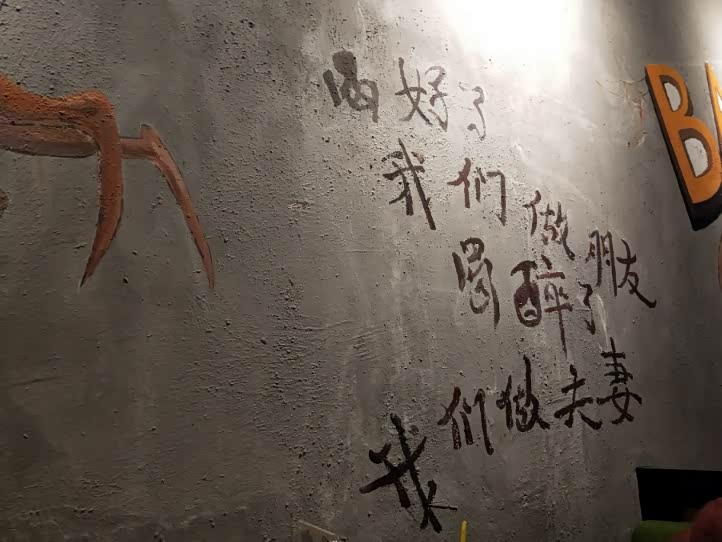 喝好了
我们做朋友
喝醉了
我们做夫妻
BA